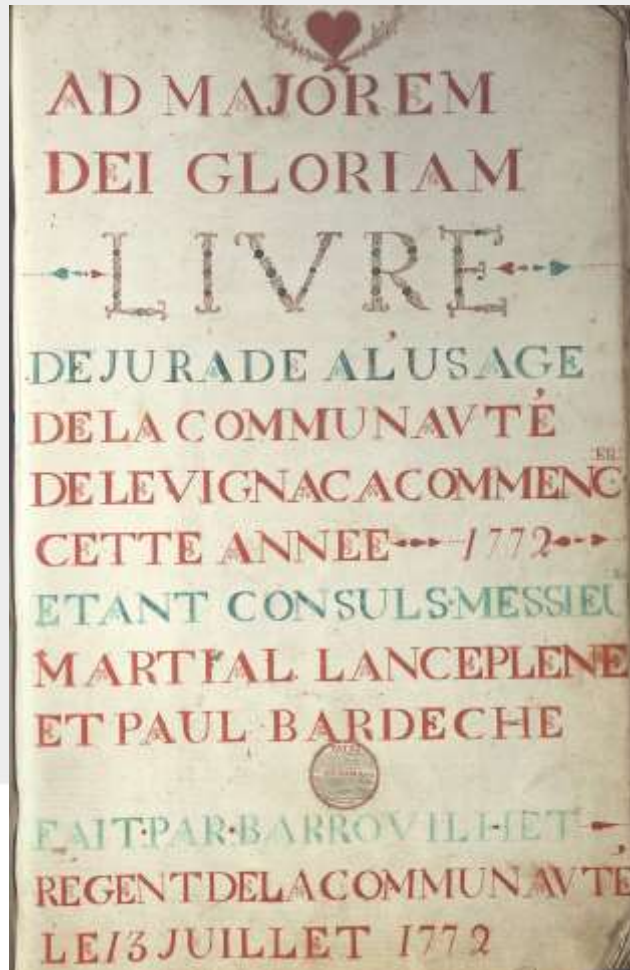 AD MAJOREM
DEI GLORIAM
LIVRE
DE JURADE AL'USAGE
DE LA COMMUNAVTÉ
DE LEVIGNAC A COMMENCER
CETTE ANNEE 1772
ETANT CONSULS·MESSIEU
MARTIAL LANCEPLENE
ET PAUL BARDECHE
FAIT·PAR·BARROVILHET
REGENT DE LA COMMUNAVTÉ
LE 13 JUILLET 1772